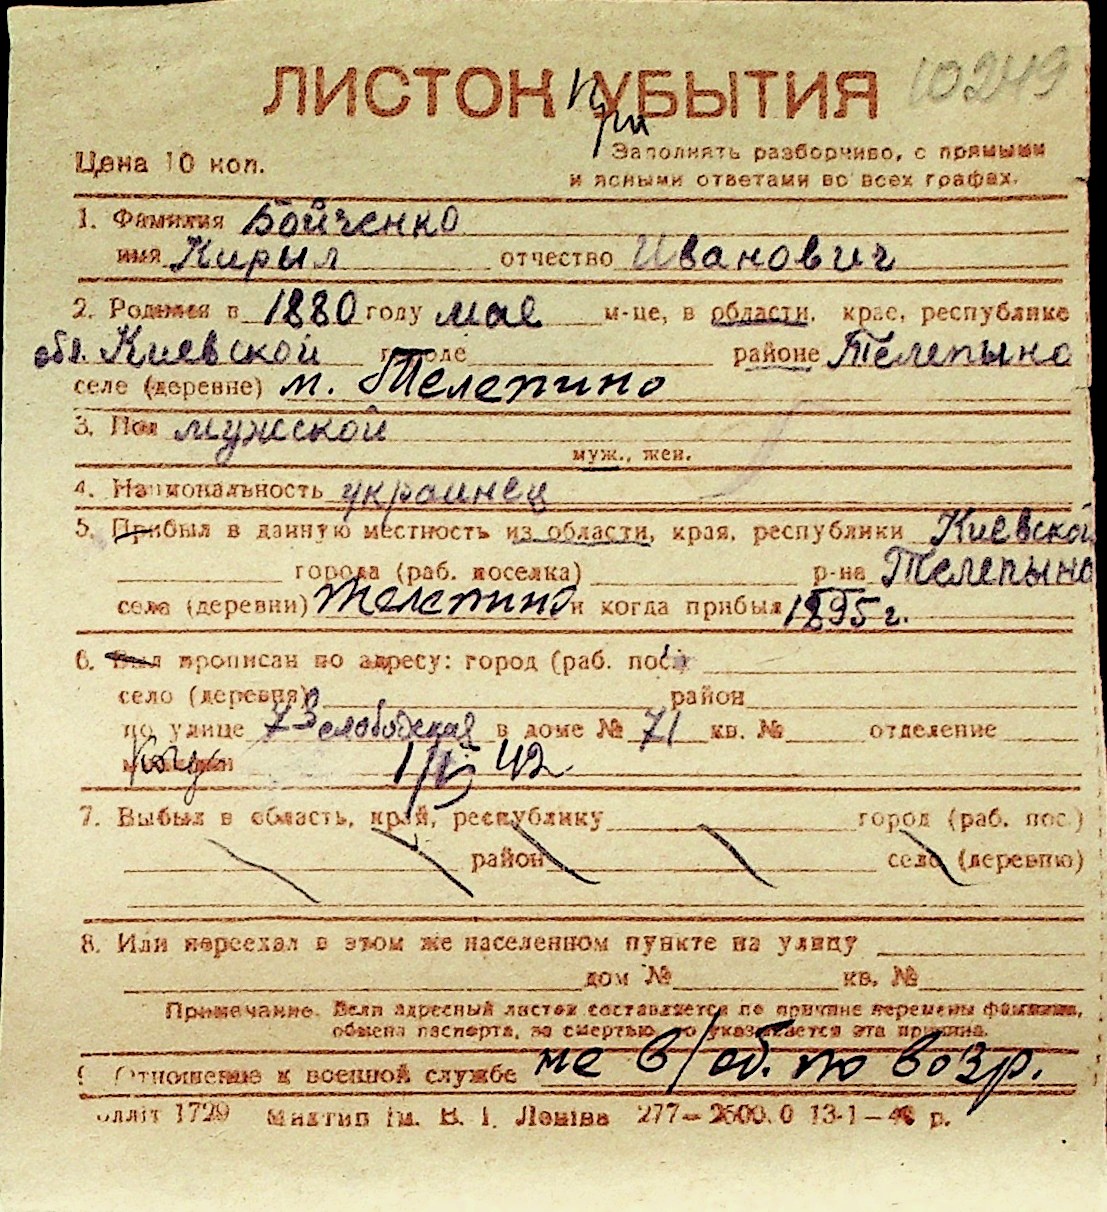 ЛИСТОК УБЫТИЯ 10249
При
Цена 10 коп.
Заполнять разборчиво, с прямыми
и ясными ответами во всех графах.
1. Фамилия Бойченко
имя Кирыл отчество Иванович
2. Родился в 1880 году мае м-це, в области, крае, республике
обл. Киевской городе районе Телепыно
селе (деревне) м. Телепино
3. Пол мужской
муж., жен.
4. Национальность украинец
5. Прибыл в данную местность из области, края, республики Киевской
города (раб. поселка) р-на Телепыно
села (деревни) Телепино и когда прибыл 1895 г.
6. Был прописан по адресу: город (раб. пос.)
село (деревня) район
по улице 7 Слободская в доме № 71 кв. № отделение
милиции 42
7. Выбыл в область, край, республику город (раб. пос.)
район село (деревню)
8. Или переехал в этом же населенном пункте на улицу
дом № кв. №
Примечание. Если адресный листок составляется по причине перемены фамилии,
обмена паспорта, за смертью, то указывается эта причина.
9. Отношение к военной службе не в/об. по возр.
Оллiт 1729 Миктип iм. В. I. Ленiна 277—2500.0 13-1—4 р.